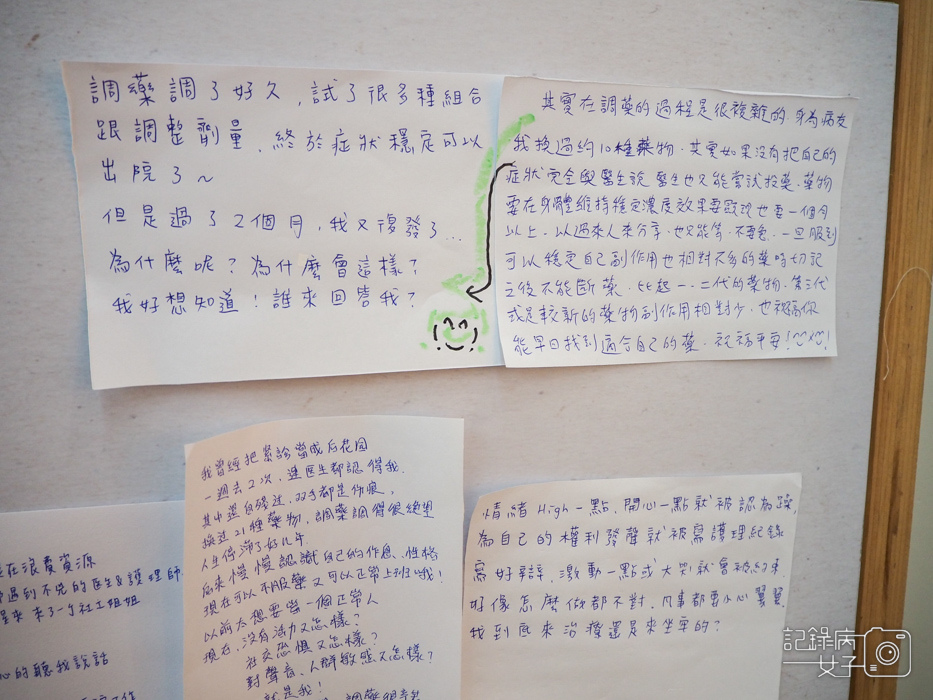 調藥調了好久,試了很多種組合
跟調整劑量、終於症狀穩定可以
出院了~
但是過了2個月,我又復發了...
為什麼呢?為什麼會這樣?
我好想知道!誰來回答我?
其實在調藥的過程是很複雜的.身為病友
我換過約10種藥物.其實如果沒有把自己的
症狀完全與醫生說.醫生也只能嘗試投藥.藥物
要在身體維持穩定濃度效果要致現也要一個月
以上.以過來人來分享.也只能等.不要急.一旦服到
可以穩定自己副作用也相對不多的藥時切記
之後不能斷藥..比起一.二代的藥物.第三代
或是較新的藥物副作用相對少.也祝福你
能早日找到適合自己的藥.祝福平安!
我曾經把急診當成后花園
一週去2次,連醫生都認得我.
其中還自殘過,双手都是伤痕,
換过21種藥物,調藥調得很絕望
人生停滯了好几年
后來慢慢認識自己的作息、性格
現在可以不服藥又可以正常上班了哦!
以前太想要當一個正常人
現在,沒有活力又怎樣?
社交恐惧又怎樣?
對聲音、人群敏感又怎樣?
就是我!
情緒High一點、開心一點就被認為躁,
為自己的權利發聲就被寫護理紀錄
寫好辯,激動一點或大哭就會被約束
好像怎麼做都不對,凡事都要小心翼翼.
我到底來治療還是來坐牢的?
在浪費資源
遇到不兇的医生&護理師
來了個社工姐姐
心的聽我說話
記錄病
女子